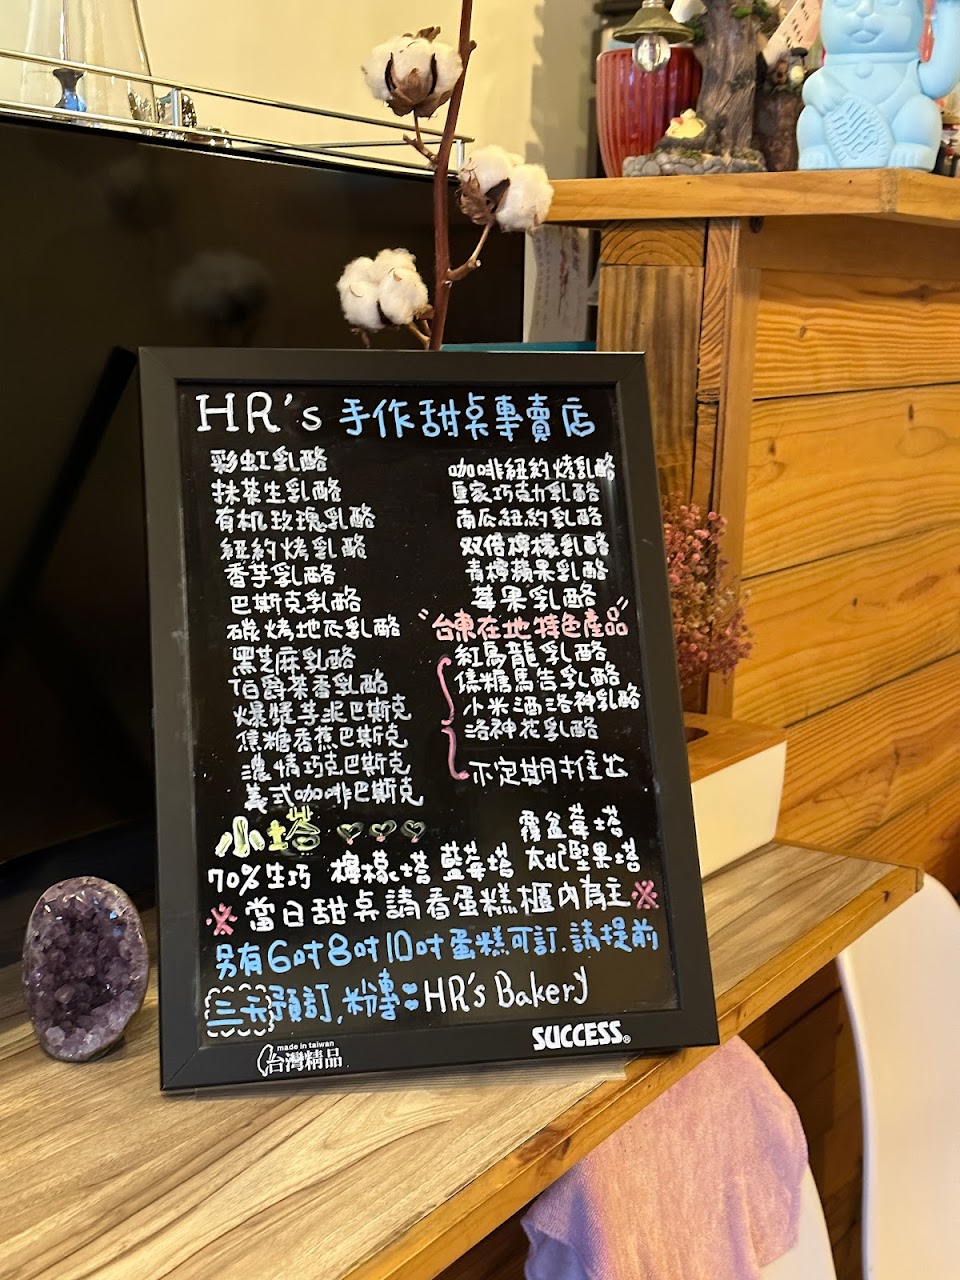 HR's 手作甜桌專賣店
彩虹乳酪
抹茶生乳酪
有机玫瑰乳酪
紐約烤乳酪
香芋乳酪
巴斯克乳酪
碳烤地瓜乳酪
黑芝麻乳酪
伯爵茶香乳酪
爆漿芋泥巴斯克
焦糖香蕉巴斯克
濃情巧克巴斯克
義式咖啡巴斯克
咖啡紐約烤乳酪
皇家巧克力乳酪
南瓜紐約乳酪
双倍檸檬乳酪
青檸蘋果乳酪
莓果乳酪
"台東在地特色產品"
紅烏龍乳酪
焦糖馬告乳酪
小米酒洛神乳酪
洛神花乳酪
不定期推出
小塔
覆盆莓塔
70%生巧 檸檬塔 藍莓塔 太妃堅果塔
※當日甜桌請看蛋糕櫃內為主※
另有6吋8吋10吋蛋糕可訂.請提前
三天預訂,粉專:HR's Bakery
made in taiwan
台灣精品
SUCCESS®